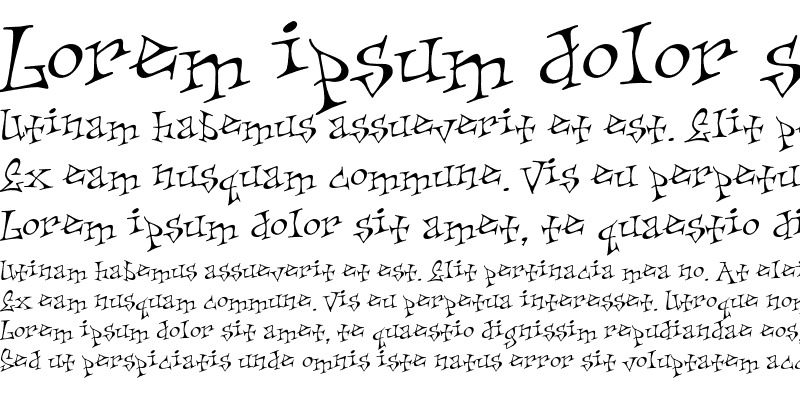 Lorem ipsum dolor s
Utinam habemus assueverit et est. Elit p
Ex eam nusquam commune. Vis eu perpetu
Lorem ipsum dolor sit amet, te quaestio di
Utinam habemus assueverit et est. Elit pertinacia mea no. At elei
Ex eam nusquam commune. Vis eu perpetua interesset. Utroque non
Lorem ipsum dolor sit amet, te quaestio dignissim repudiandae eos,
Sed ut perspiciatis unde omnis iste natus error sit voluptatem acc